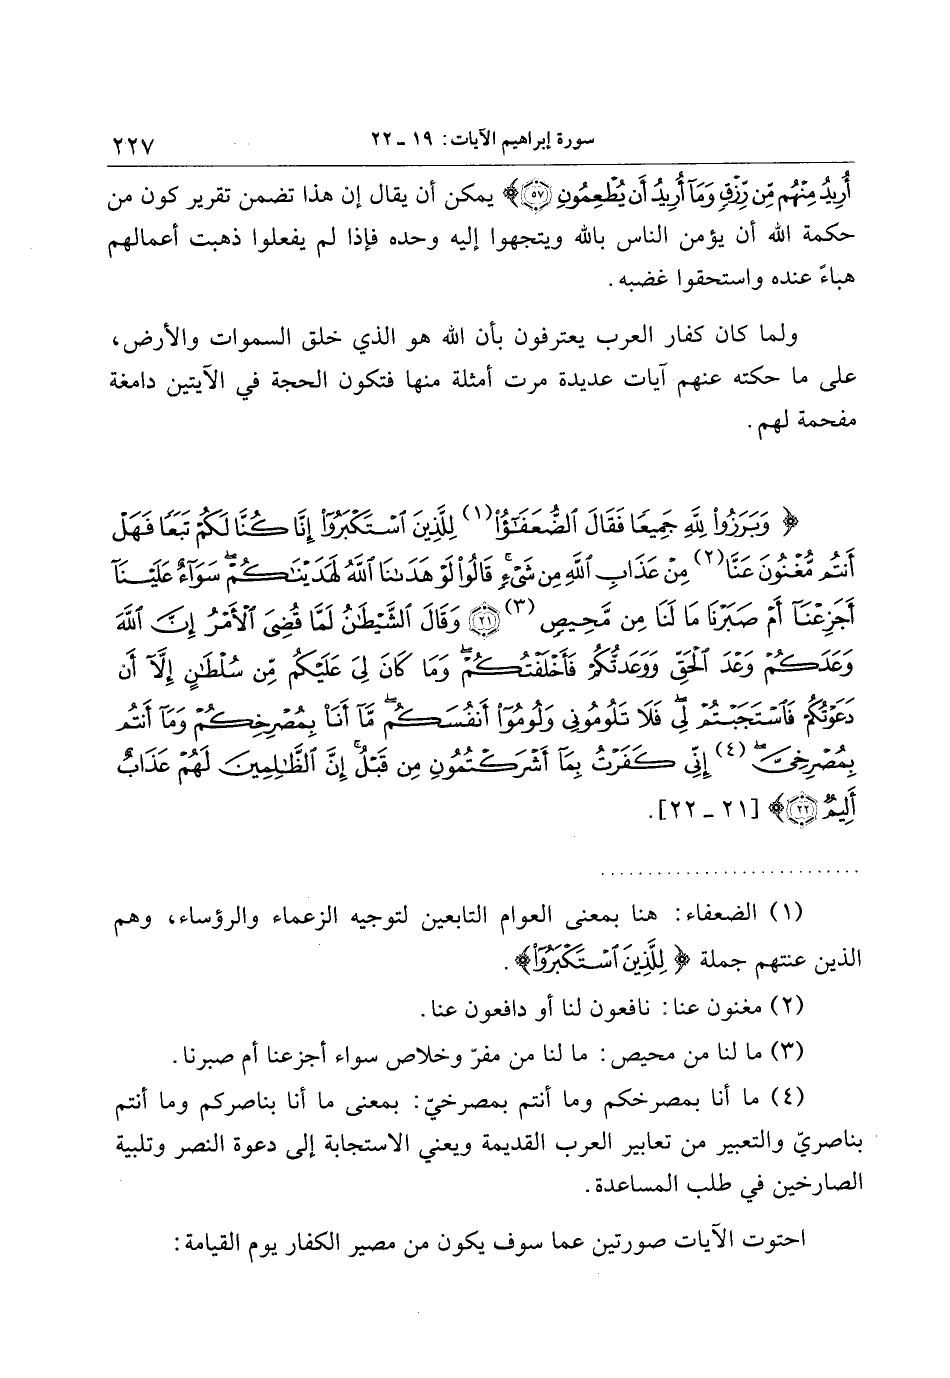 سورة إبراهيم الآيات: ١٩ ـ ٢٢ ٢٢٧
أُرِيدُ مِنْهُم مِّن رِّزْقٍ وَمَآ أُرِيدُ أَن يُطْعِمُونِ (٥٧)﴾ يمكن أن يقال إن هذا تضمن تقرير كون من
حكمة الله أن يؤمن الناس بالله ويتجهوا إليه وحده فإذا لم يفعلوا ذهبت أعمالهم
هباءً عنده واستحقوا غضبه.
ولما كان كفار العرب يعترفون بأن الله هو الذي خلق السموات والأرض،
على ما حكته عنهم آيات عديدة مرت أمثلة منها فتكون الحجة في الآيتين دامغة
مفحمة لهم.
﴿ وَبَرَزُوا۟ لِلَّهِ جَمِيعًا فَقَالَ ٱلضُّعَفَـٰٓؤُا۟(١) لِلَّذِينَ ٱسْتَكْبَرُوٓا۟ إِنَّا كُنَّا لَكُمْ تَبَعًا فَهَلْ
أَنتُم مُّغْنُونَ عَنَّا(٢) مِنْ عَذَابِ ٱللَّهِ مِن شَىْءٍ ۚ قَالُوا۟ لَوْ هَدَىٰنَا ٱللَّهُ لَهَدَيْنَـٰكُمْ ۖ سَوَآءٌ عَلَيْنَآ
أَجَزِعْنَآ أَمْ صَبَرْنَا مَا لَنَا مِن مَّحِيصٍ(٣) (٢١) وَقَالَ ٱلشَّيْطَـٰنُ لَمَّا قُضِىَ ٱلْأَمْرُ إِنَّ ٱللَّهَ
وَعَدَكُمْ وَعْدَ ٱلْحَقِّ وَوَعَدتُّكُمْ فَأَخْلَفْتُكُمْ ۖ وَمَا كَانَ لِىَ عَلَيْكُم مِّن سُلْطَـٰنٍ إِلَّآ أَن
دَعَوْتُكُمْ فَٱسْتَجَبْتُمْ لِى ۖ فَلَا تَلُومُونِى وَلُومُوٓا۟ أَنفُسَكُم ۖ مَّآ أَنَا۠ بِمُصْرِخِكُمْ وَمَآ أَنتُم
بِمُصْرِخِىَّ ۖ(٤) إِنِّى كَفَرْتُ بِمَآ أَشْرَكْتُمُونِ مِن قَبْلُ ۗ إِنَّ ٱلظَّـٰلِمِينَ لَهُمْ عَذَابٌ
أَلِيمٌ (٢٢)﴾ [٢١ ـ ٢٢].
(١) الضعفاء: هنا بمعنى العوام التابعين لتوجيه الزعماء والرؤساء، وهم
الذين عنتهم جملة ﴿ لِلَّذِينَ ٱسْتَكْبَرُوٓا۟﴾.
(٢) مغنون عنا: نافعون لنا أو دافعون عنا.
(٣) ما لنا من محيص: ما لنا من مفرّ وخلاص سواء أجزعنا أم صبرنا.
(٤) ما أنا بمصرخكم وما أنتم بمصرخيّ: بمعنى ما أنا بناصركم وما أنتم
بناصريّ والتعبير من تعابير العرب القديمة ويعني الاستجابة إلى دعوة النصر وتلبية
الصارخين في طلب المساعدة.
احتوت الآيات صورتين عما سوف يكون من مصير الكفار يوم القيامة: